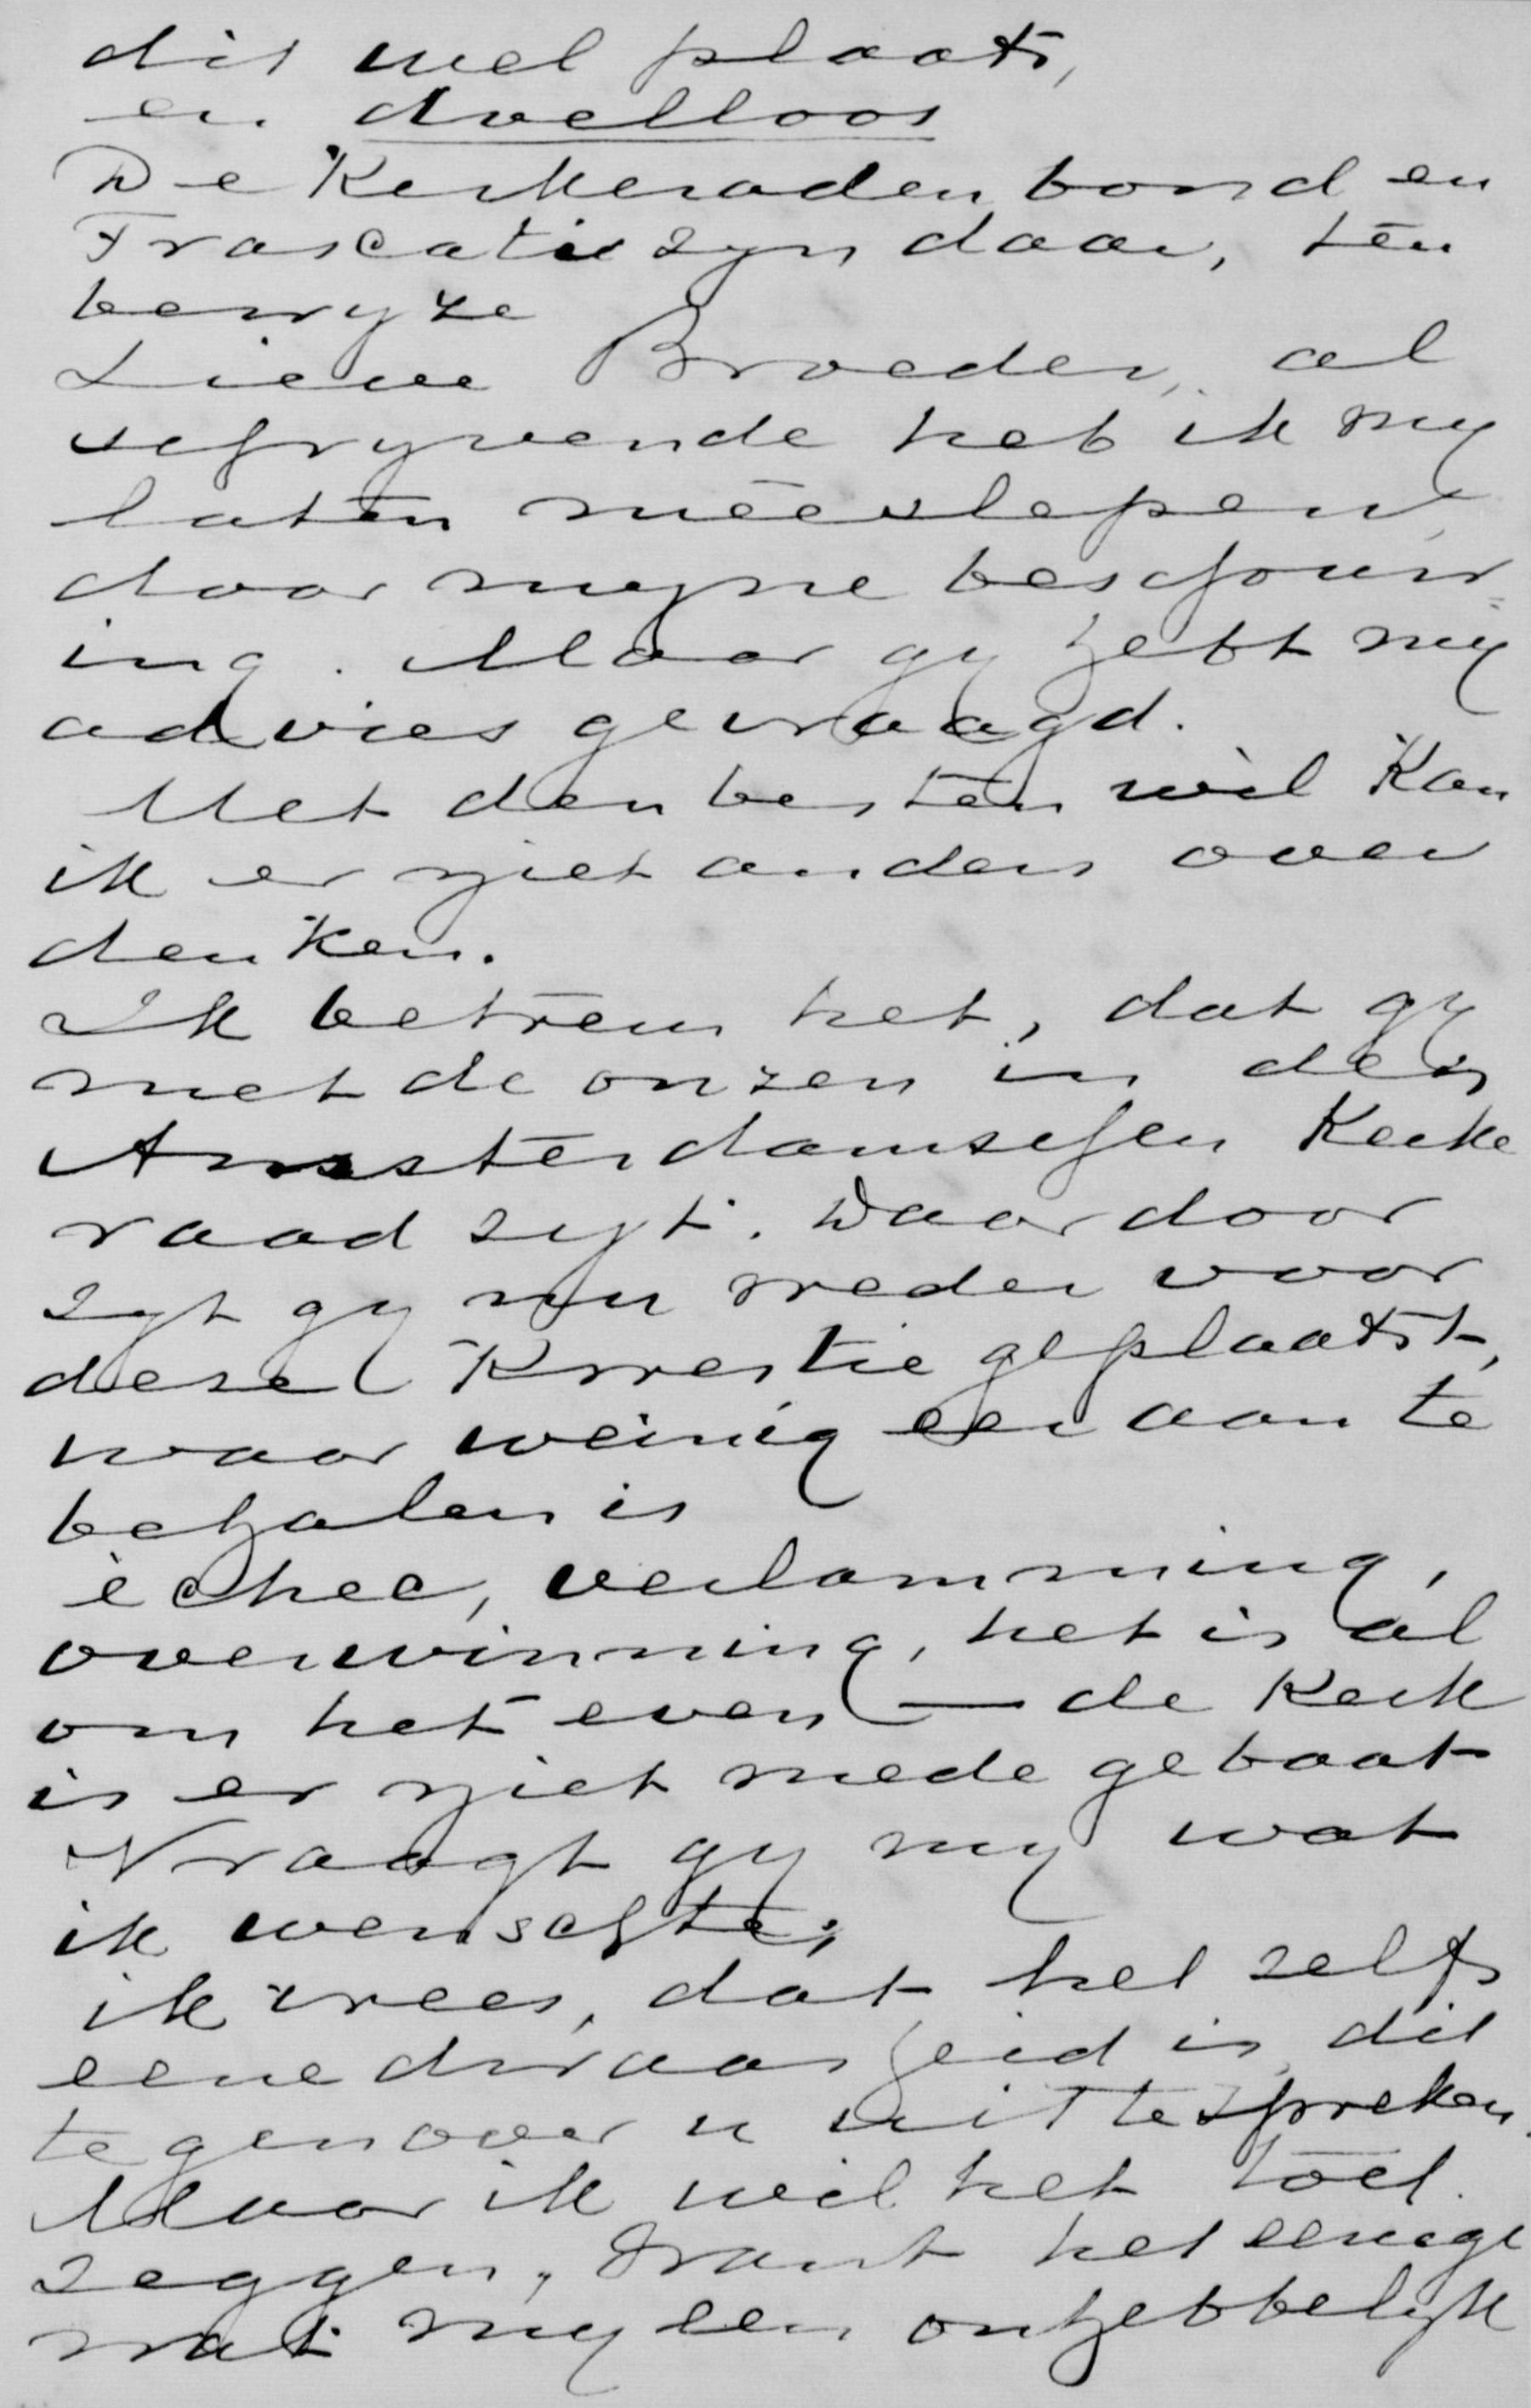 dit wel plaats,
en doelloos
De Kerkeraden bond en
Frascati zyn daar, ten
bewyze
Lieve Broeder, al
schryvende heb ik my
laten meeslepen
door myne beschouw=
ing. Maar gy hebt my
advies gevraagd.
Met den besten wil kan
ik er niet anders over
denken.
Ik betreur het, dat gy
met de onzen in den
Amsterdamschen Kerke
raad zyt. Daardoor
zyt gy nu weder voor
deze Kwestie geplaatst,
waar weinig eer aan te
behalen is
échec, verlamming,
overwinning, het is al
om het even — de Kerk
is er niet mede gebaat
Vraagt gy my wat
ik wenschte;
ik vrees, dat het zelfs
eene dwaasheid is, dit
tegenover u uit te spreken.
Maar ik wil het toch
zeggen, Want het eenige
wat my een onhebbelyk